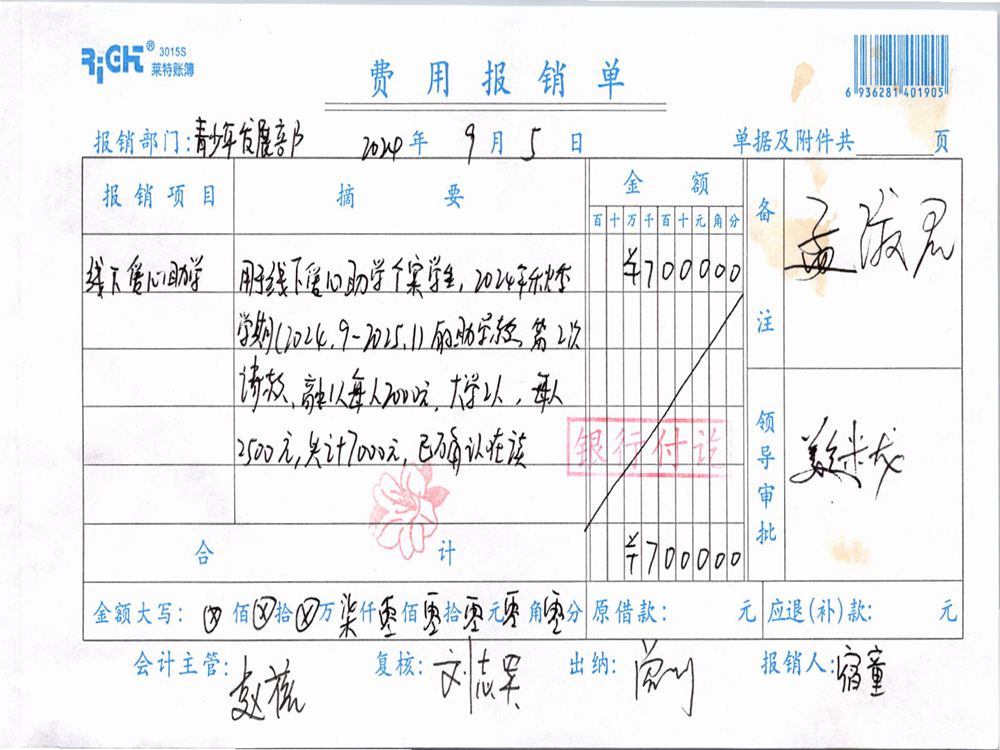 RiGHT® 3015S
莱特账簿
费用报销单
6 936281 401905
报销部门:青少年发展部 2024年9月5日 单据及附件共 页
报销项目 摘要 金额 备注
百十万千百十元角分
线下爱心助学 用于线下爱心助学个案学生,2024年秋季 ¥700000
学期(2024.9-2025.1)的助学款,第2次
请款,高中1人每人2000元,大学2人,每人
2500元,共计7000元,已确认在读
银行付讫
领导审批
合计 ¥700000
金额大写:ⓧ佰ⓧ拾ⓧ万柒仟零佰零拾零元零角零分 原借款: 元 应退(补)款: 元
会计主管: 复核:刘志 出纳: 报销人:宿童